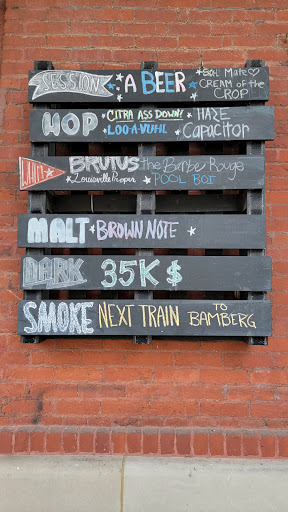 SESSION A BEER SOUL MATE
CREAM OF THE CROP
HOP CITRA ASS DOWN! HAZE
LOO-A-VUHL Capacitor
BRUTUS the Barber Rouge
Louisville Proper POOL BOI
MALT BROWN NOTE
DARK 35K $
SMOKE NEXT TRAIN TO BAMBERG